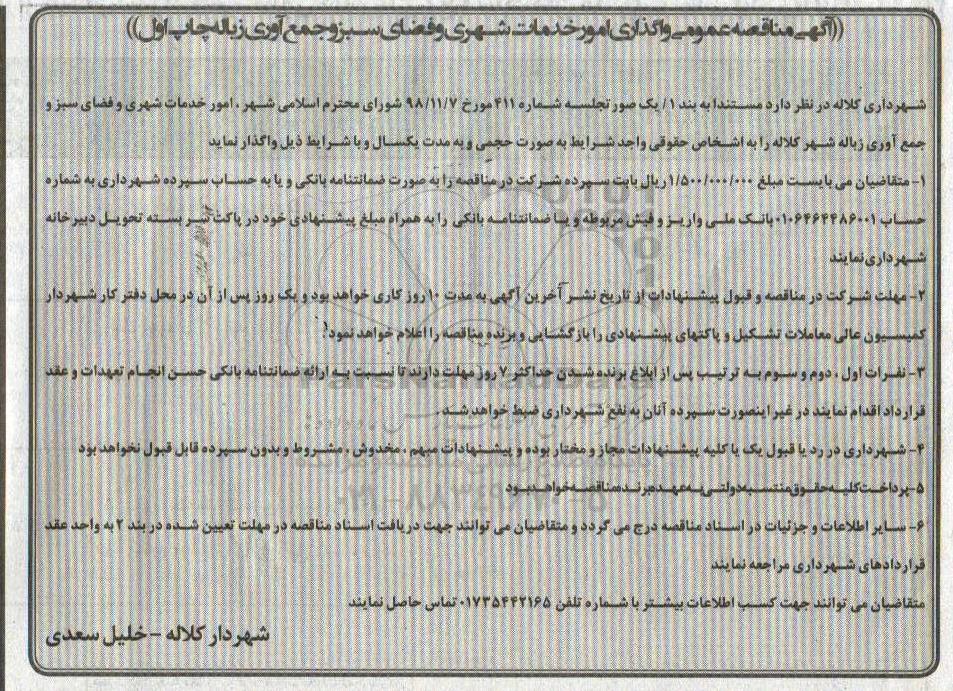 ((آگهی مناقصه عمومی واگذاری امور خدمات شهری و فضای سبز و جمع آوری زباله چاپ اول))
شهرداری کلاله در نظر دارد مستندا به بند ۱/ یک صورتجلسه شماره ۴۱۱ مورخ ۹۸/۱۱/۷ شورای محترم اسلامی شهر ، امور خدمات شهری و فضای سبز و
جمع آوری زباله شهر کلاله را به اشخاص حقوقی واجد شرایط به صورت حجمی و به مدت یکسال و با شرایط ذیل واگذار نماید
۱- متقاضیان می بایست مبلغ ۱/۵۰۰/۰۰۰/۰۰۰ ریال بابت سپرده شرکت در مناقصه را به صورت ضمانتنامه بانکی و یا به حساب سپرده شهرداری به شماره
حساب ۰۱۰۶۴۶۴۴۸۶۰۰۱ بانک ملی واریز و فیش مربوطه و یا ضمانتنامه بانکی را به همراه مبلغ پیشنهادی خود در پاکت سر بسته تحویل دبیرخانه
شهرداری نمایند
۲- مهلت شرکت در مناقصه و قبول پیشنهادات از تاریخ نشر آخرین آگهی به مدت ۱۰ روز کاری خواهد بود و یک روز پس از آن در محل دفتر کار شهردار
کمیسیون عالی معاملات تشکیل و پاکتهای پیشنهادی را بازگشایی و برنده مناقصه را اعلام خواهد نمود.
۳- نفرات اول ، دوم و سوم به ترتیب پس از ابلاغ برنده شدن حداکثر ۷ روز مهلت دارند تا نسبت به ارائه ضمانتنامه بانکی حسن انجام تعهدات و عقد
قرارداد اقدام نمایند در غیر اینصورت سپرده آنان به نفع شهرداری ضبط خواهد شد .
۴- شهرداری در رد یا قبول یک یا کلیه پیشنهادات مجاز و مختار بوده و پیشنهادات مبهم ، مخدوش ، مشروط و بدون سپرده قابل قبول نخواهد بود
۵- پرداخت کلیه حقوق منتسبه دولتی به عهده برنده مناقصه خواهد بود
۶- سایر اطلاعات و جزئیات در اسناد مناقصه درج می گردد و متقاضیان می توانند جهت دریافت اسناد مناقصه در مهلت تعیین شده در بند ۲ به واحد عقد
قراردادهای شهرداری مراجعه نمایند
متقاضیان می توانند جهت کسب اطلاعات بیشتر با شماره تلفن ۰۱۷۳۵۴۴۲۱۶۵ تماس حاصل نمایند
شهردار کلاله - خلیل سعدی